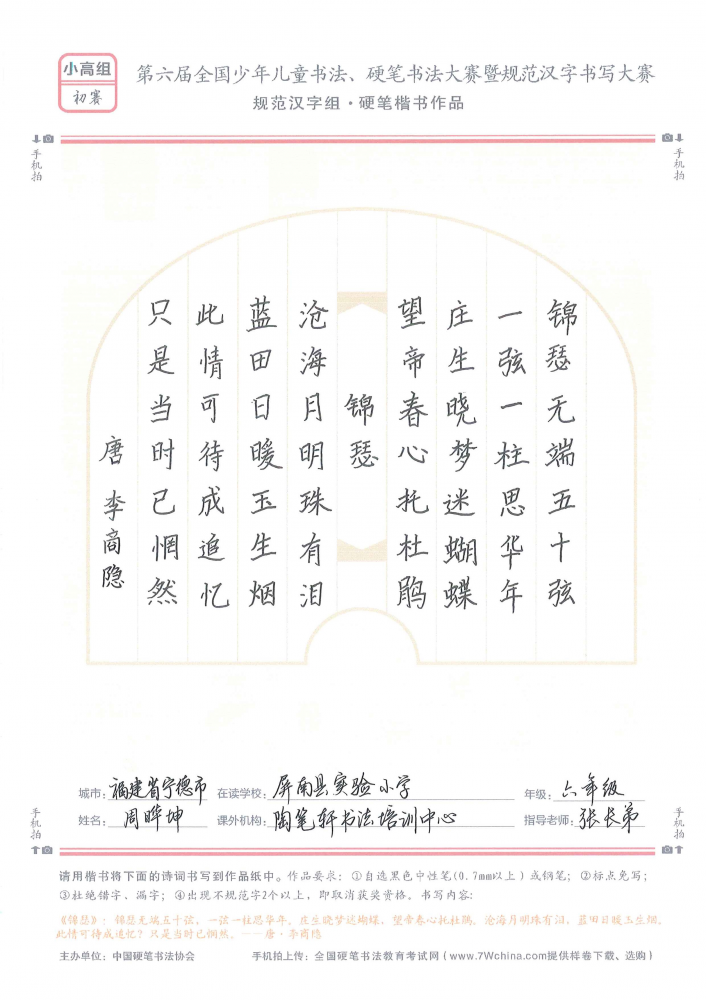 小高组
初赛
第六届全国少年儿童书法、硬笔书法大赛暨规范汉字书写大赛
规范汉字组·硬笔楷书作品
手机拍
手机拍
锦瑟无端五十弦
一弦一柱思华年
庄生晓梦迷蝴蝶
望帝春心托杜鹃
锦瑟
沧海月明珠有泪
蓝田日暖玉生烟
此情可待成追忆
只是当时已惘然
唐 李商隐
手机拍
手机拍
城市：福建省宁德市 在读学校：屏南县实验小学 年级：六年级
姓名：周晔坤 课外机构：陶笔轩书法培训中心 指导老师：张长弟
请用楷书将下面的诗词书写到作品纸中。作品要求：①自选黑色中性笔(0.7mm以上)或钢笔；②标点免写；
③杜绝错字、漏字；④出现不规范字2个以上，即取消获奖资格。书写内容：
《锦瑟》：锦瑟无端五十弦，一弦一柱思华年。庄生晓梦迷蝴蝶，望帝春心托杜鹃。沧海月明珠有泪，蓝田日暖玉生烟。
此情可待成追忆？只是当时已惘然。——唐·李商隐
主办单位：中国硬笔书法协会 手机拍上传：全国硬笔书法教育考试网（www.7Wchina.com提供样卷下载、选购）